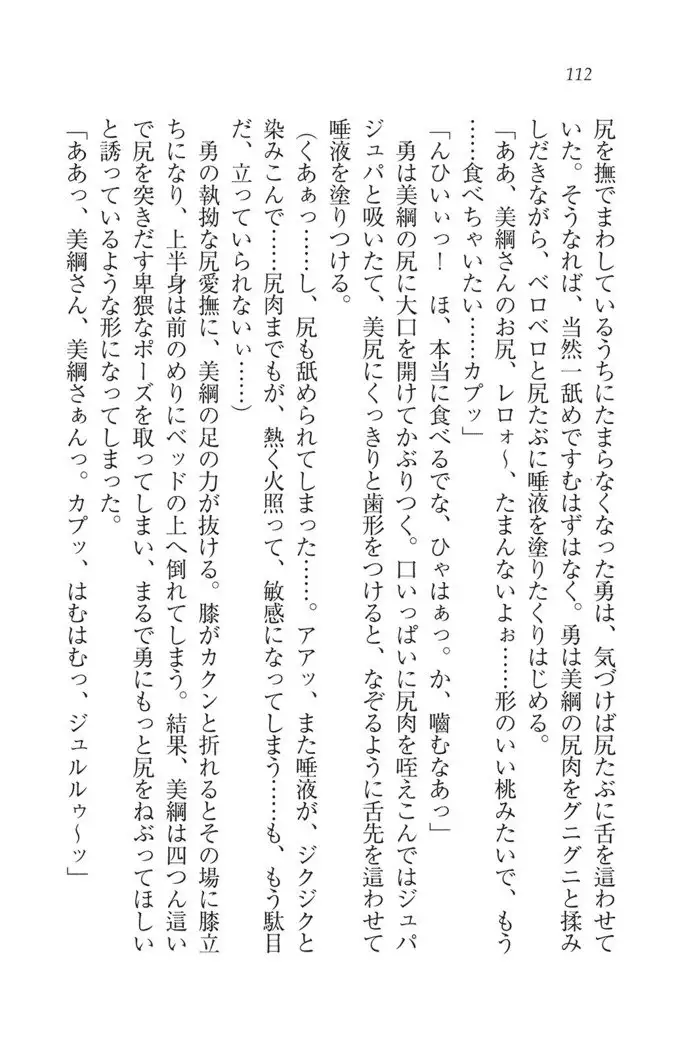 112
尻を撫でまわしているうちにたまらなくなった勇は、気づけば尻たぶに舌を這わせて
いた。そうなれば、当然一舐めですむはずはなく。勇は美綱の尻肉をグニグニと揉み
しだきながら、ベロベロと尻たぶに唾液を塗りたくりはじめる。
「ああ、美綱さんのお尻、レロォ〜、たまんないよぉ……形のいい桃みたいで、もう
……食べちゃいたい……カプッ」
「んひいぃっ！　ほ、本当に食べるでな、ひゃはぁっ。か、嚙むなあっ」
勇は美綱の尻に大口を開けてかぶりつく。口いっぱいに尻肉を咥えこんではジュパ
ジュパと吸いたて、美尻にくっきりと歯形をつけると、なぞるように舌先を這わせて
唾液を塗りつける。
（くあぁっ……し、尻も舐められてしまった……。アアッ、また唾液が、ジクジクと
染みこんで……尻肉までもが、熱く火照って、敏感になってしまう……も、もう駄目
だ、立っていられないぃ……）
勇の執拗な尻愛撫に、美綱の足の力が抜ける。膝がカクンと折れるとその場に膝立
ちになり、上半身は前のめりにベッドの上へ倒れてしまう。結果、美綱は四つん這い
で尻を突きだす卑猥なポーズを取ってしまい、まるで勇にもっと尻をねぶってほしい
と誘っているような形になってしまった。
「ああっ、美綱さん、美綱さぁんっ。カプッ、はむはむっ、ジュルルゥ〜ッ」